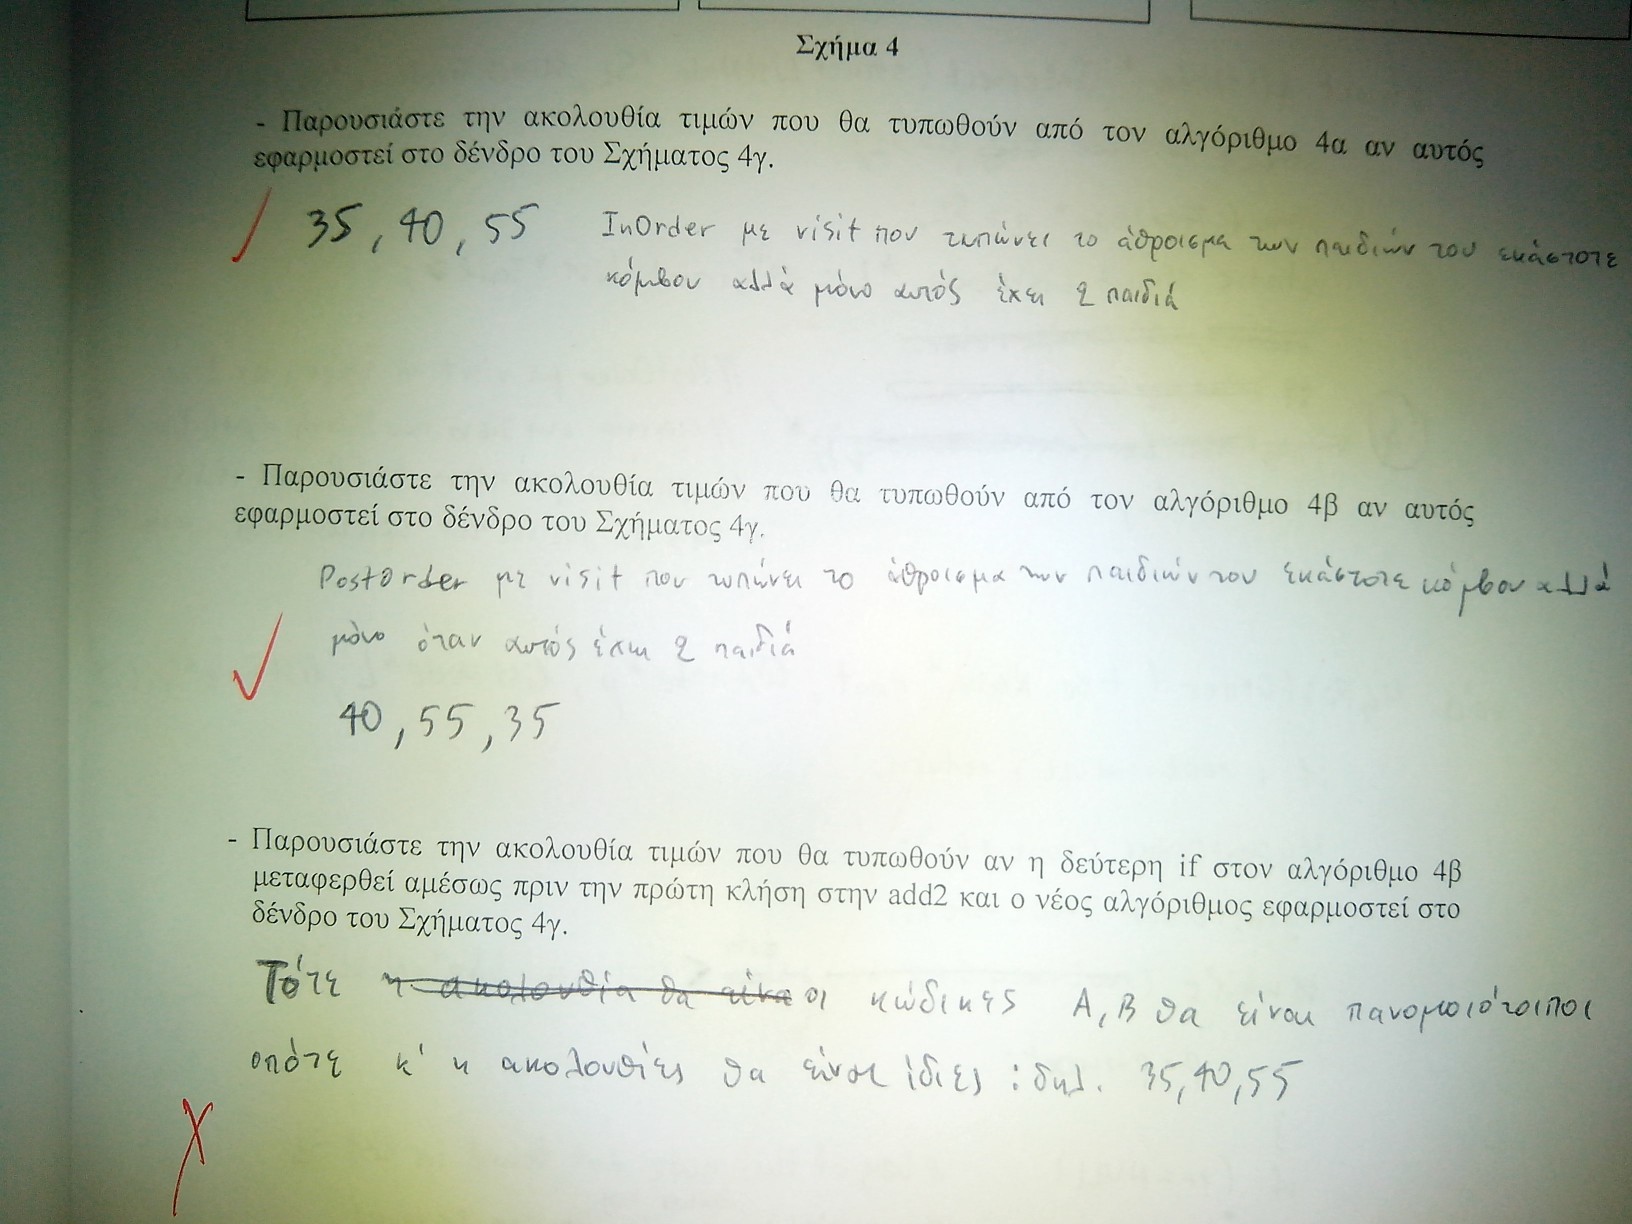 Σχήμα 4
- Παρουσιάστε την ακολουθία τιμών που θα τυπωθούν από τον αλγόριθμο 4α αν αυτός
εφαρμοστεί στο δένδρο του Σχήματος 4γ.
35, 40, 55 InOrder με visit που τυπώνει το άθροισμα των παιδιών του εκάστοτε
κόμβου αλλά μόνο αυτός έχει 2 παιδιά
- Παρουσιάστε την ακολουθία τιμών που θα τυπωθούν από τον αλγόριθμο 4β αν αυτός
εφαρμοστεί στο δένδρο του Σχήματος 4γ.
PostOrder με visit που τυπώνει το άθροισμα των παιδιών του εκάστοτε κόμβου αλλά
μόνο όταν αυτός έχει 2 παιδιά
40, 55, 35
- Παρουσιάστε την ακολουθία τιμών που θα τυπωθούν αν η δεύτερη if στον αλγόριθμο 4β
μεταφερθεί αμέσως πριν την πρώτη κλήση στην add2 και ο νέος αλγόριθμος εφαρμοστεί στο
δένδρο του Σχήματος 4γ.
Τότε η ακολουθία θα είναι οι κώδικες Α, Β θα είναι πανομοιότοιποι
οπότε κ' η ακολουθίες θα είναι ίδιες : δηλ. 35, 40, 55